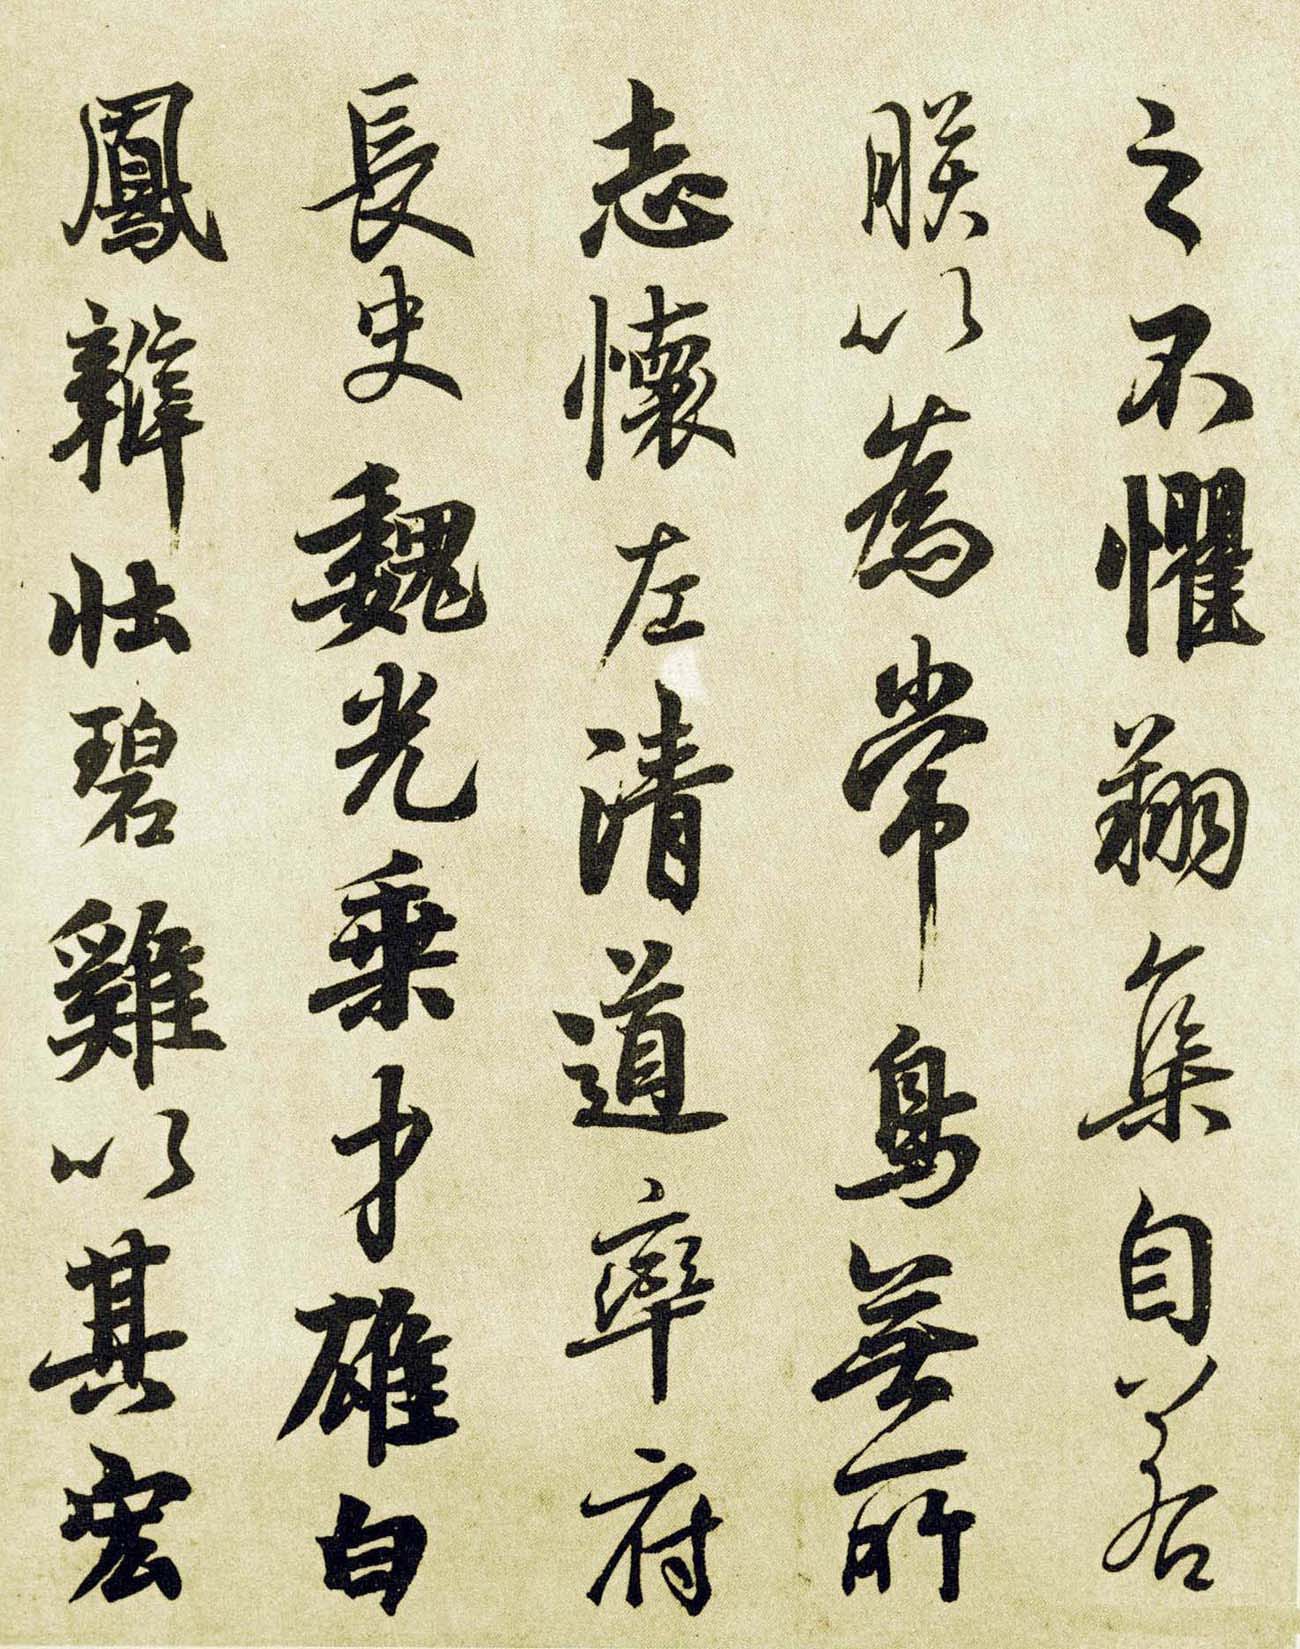 之不懼翔集自若
朕以為常鳥無所
志懷左清道率府
長史魏光乘才雄白
鳳辯壯碧雞以其宏